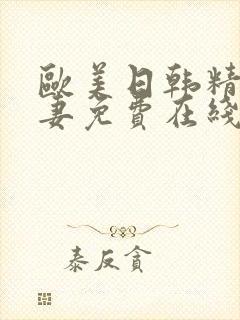 歐美日韩精
妻免費在綫
泰反貪